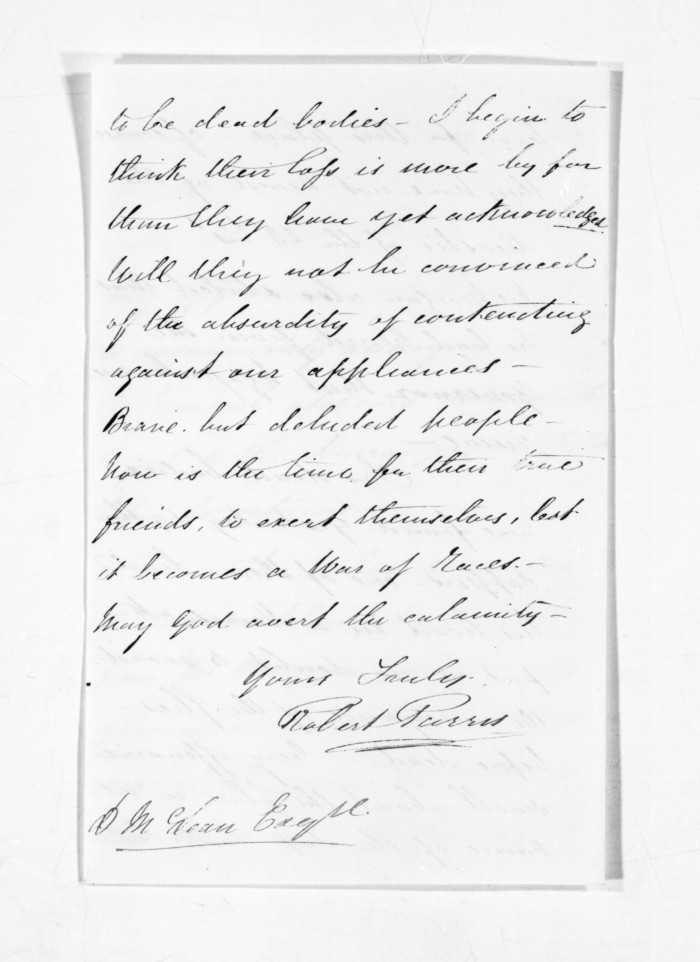 to be dead bodies – I begin to
think their loss is more by far
than they have yet acknowledged
Will they not be convinced
of the absurdity of contending
against our appliances –
Brave. but deluded people –
Now is the time, for their true
friends, to exert themselves, lest
it becomes a War of Races. –
May God avert the calamity –
Yours Truly.
Robert Parris
D McLean Esqre.